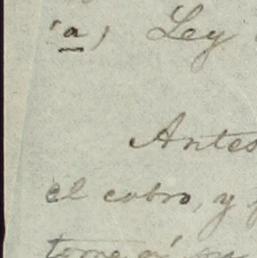 (a) Ley
Antes
el cobro, y